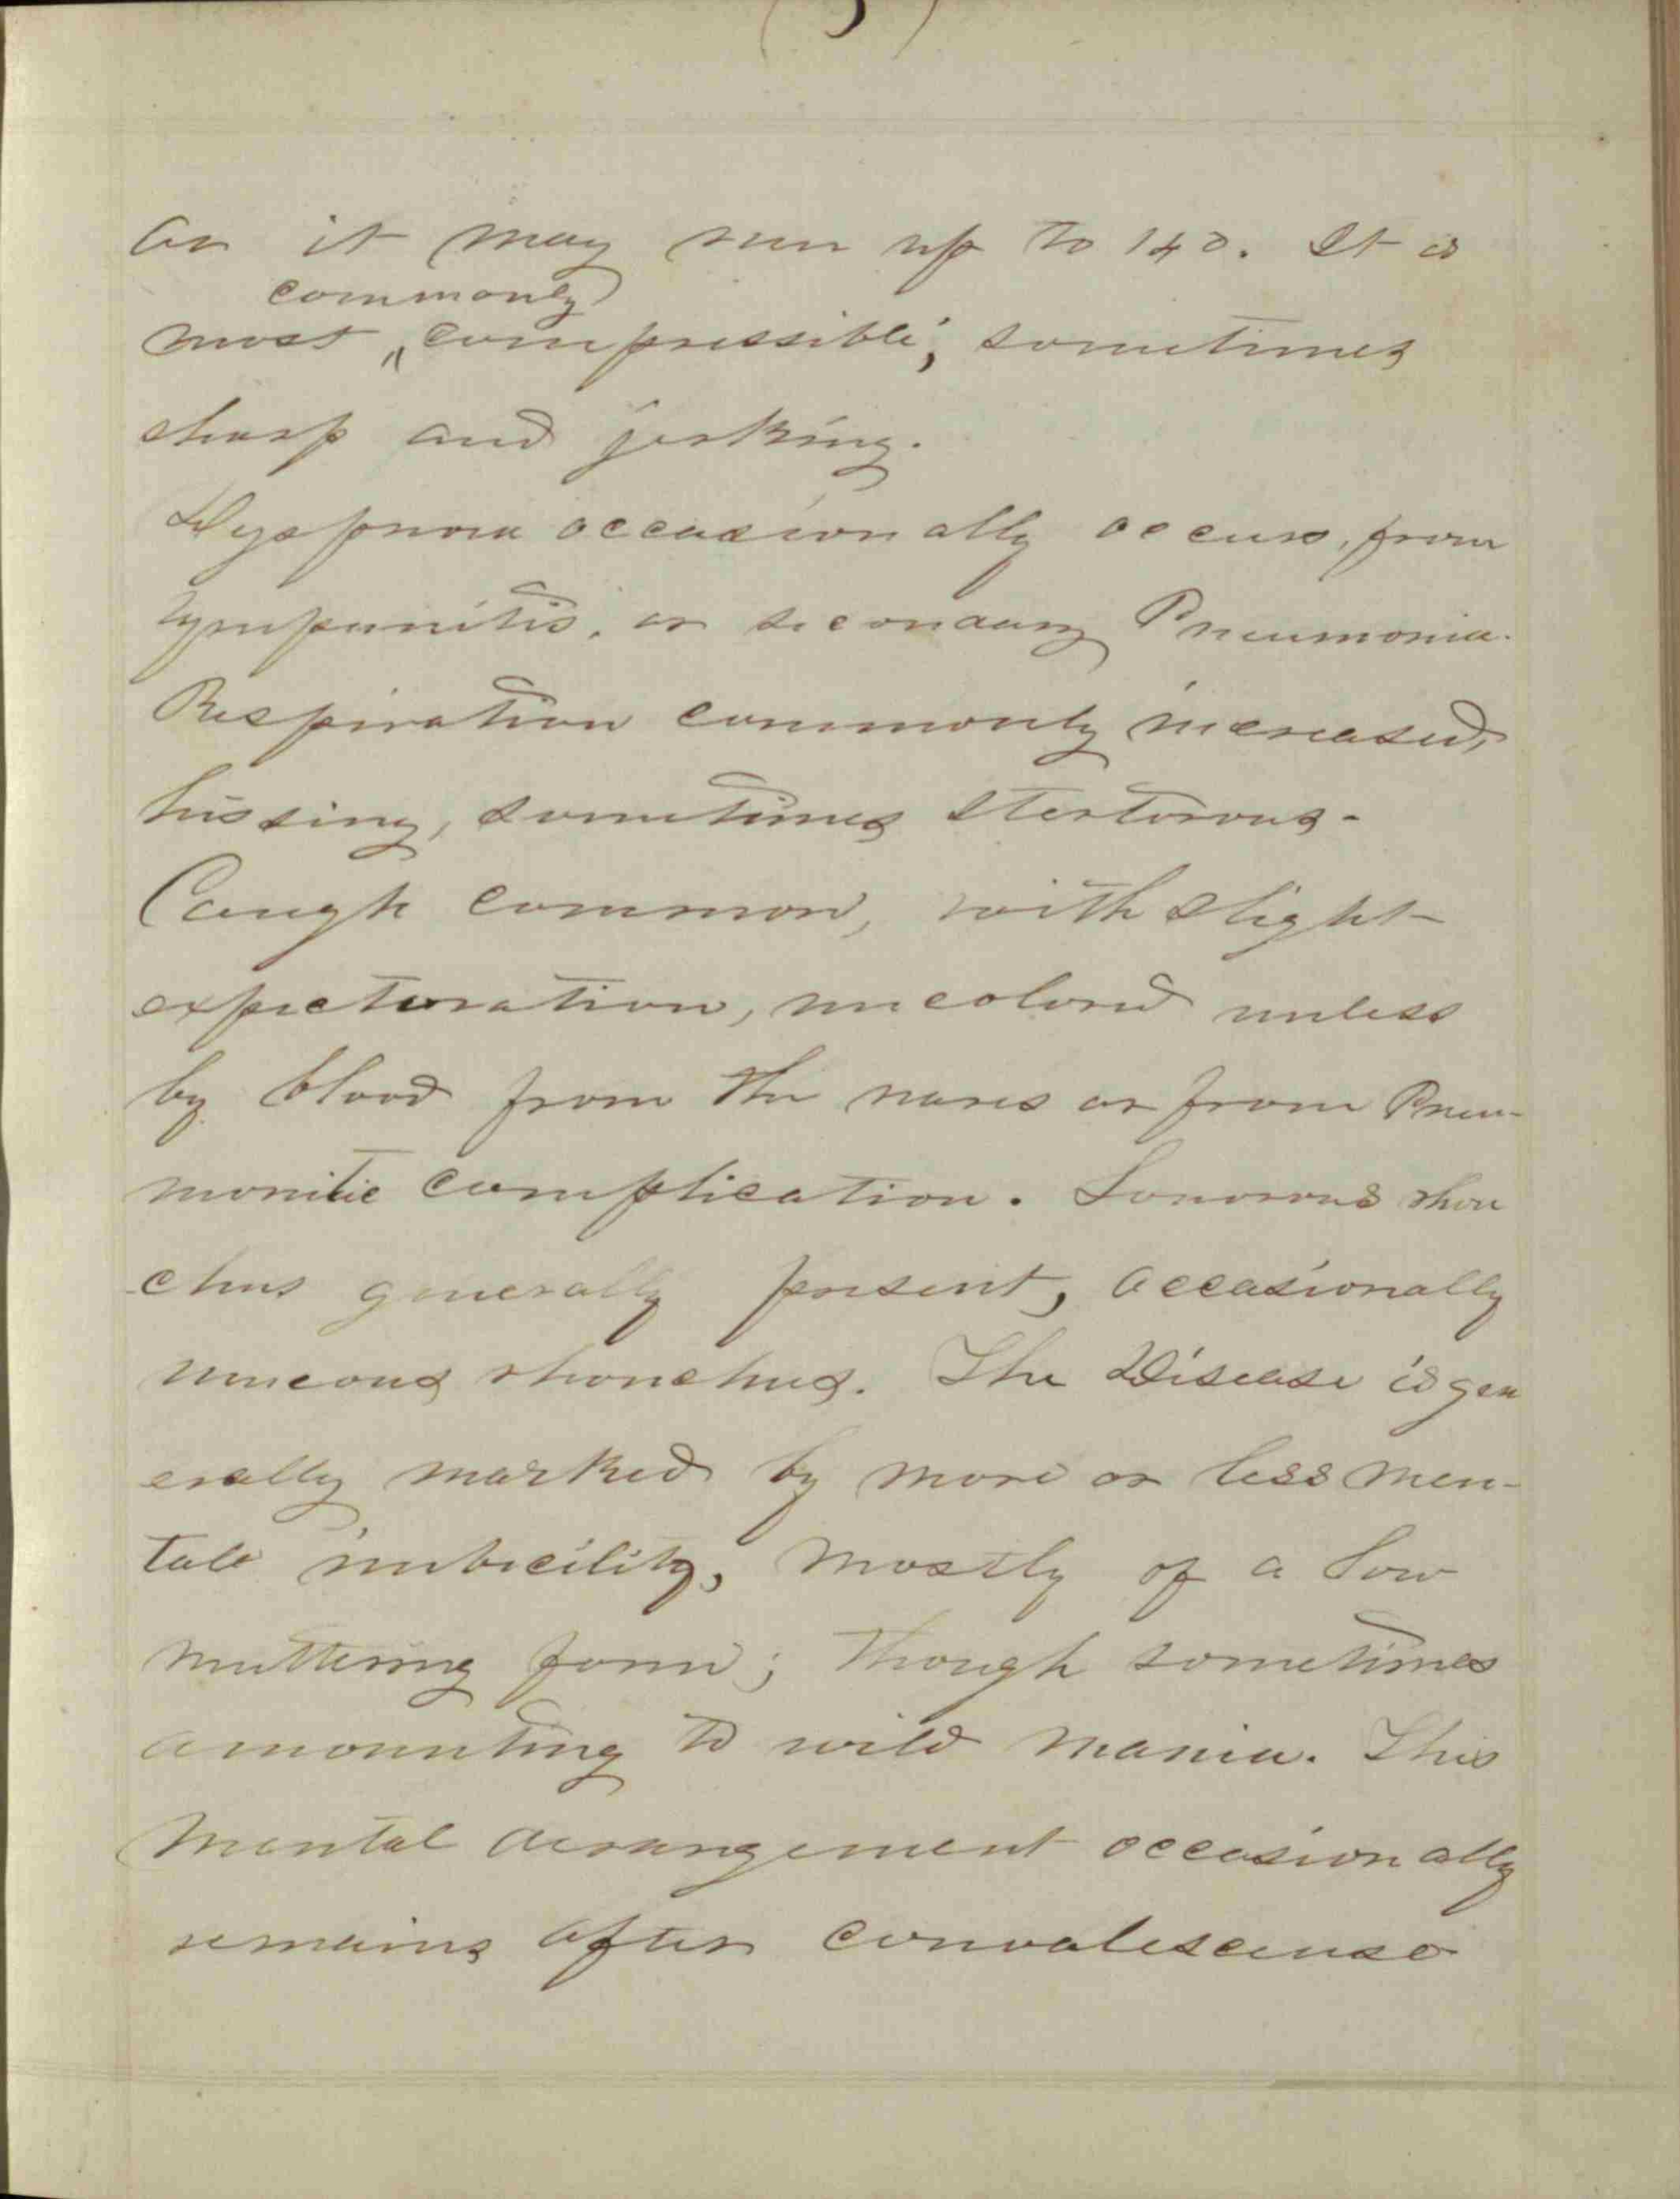 or it may run up to 140. It is
commonly
most compressible; sometimes
sharp and jerking.
Dyspnoea occasionally occurs, from
tympanitis, or secondary Pneumonia.
Respiration commonly increased,
hissing, sometimes stertorous.
Cough common, with slight
expectoration, uncolored unless
by blood from the nares or from Pneu-
monitic complication. Sonorous rhon
chus generally present, occasionally
mucous rhonchus. The Disease is gen
erally marked by more or less men-
tale imbicility, mostly of a low
muttering form; though sometimes
amounting to wild mania. This
Mental derangement occasionally
remains after convalescense